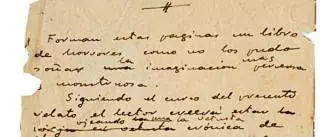 Forman estas paginas un libro
de horrores como no los pudo
soñar la imaginacion mas perversa
monstruosa.
Siguiendo el curso del presente
relato, el lector creerá estar la
vetusta
crónica de